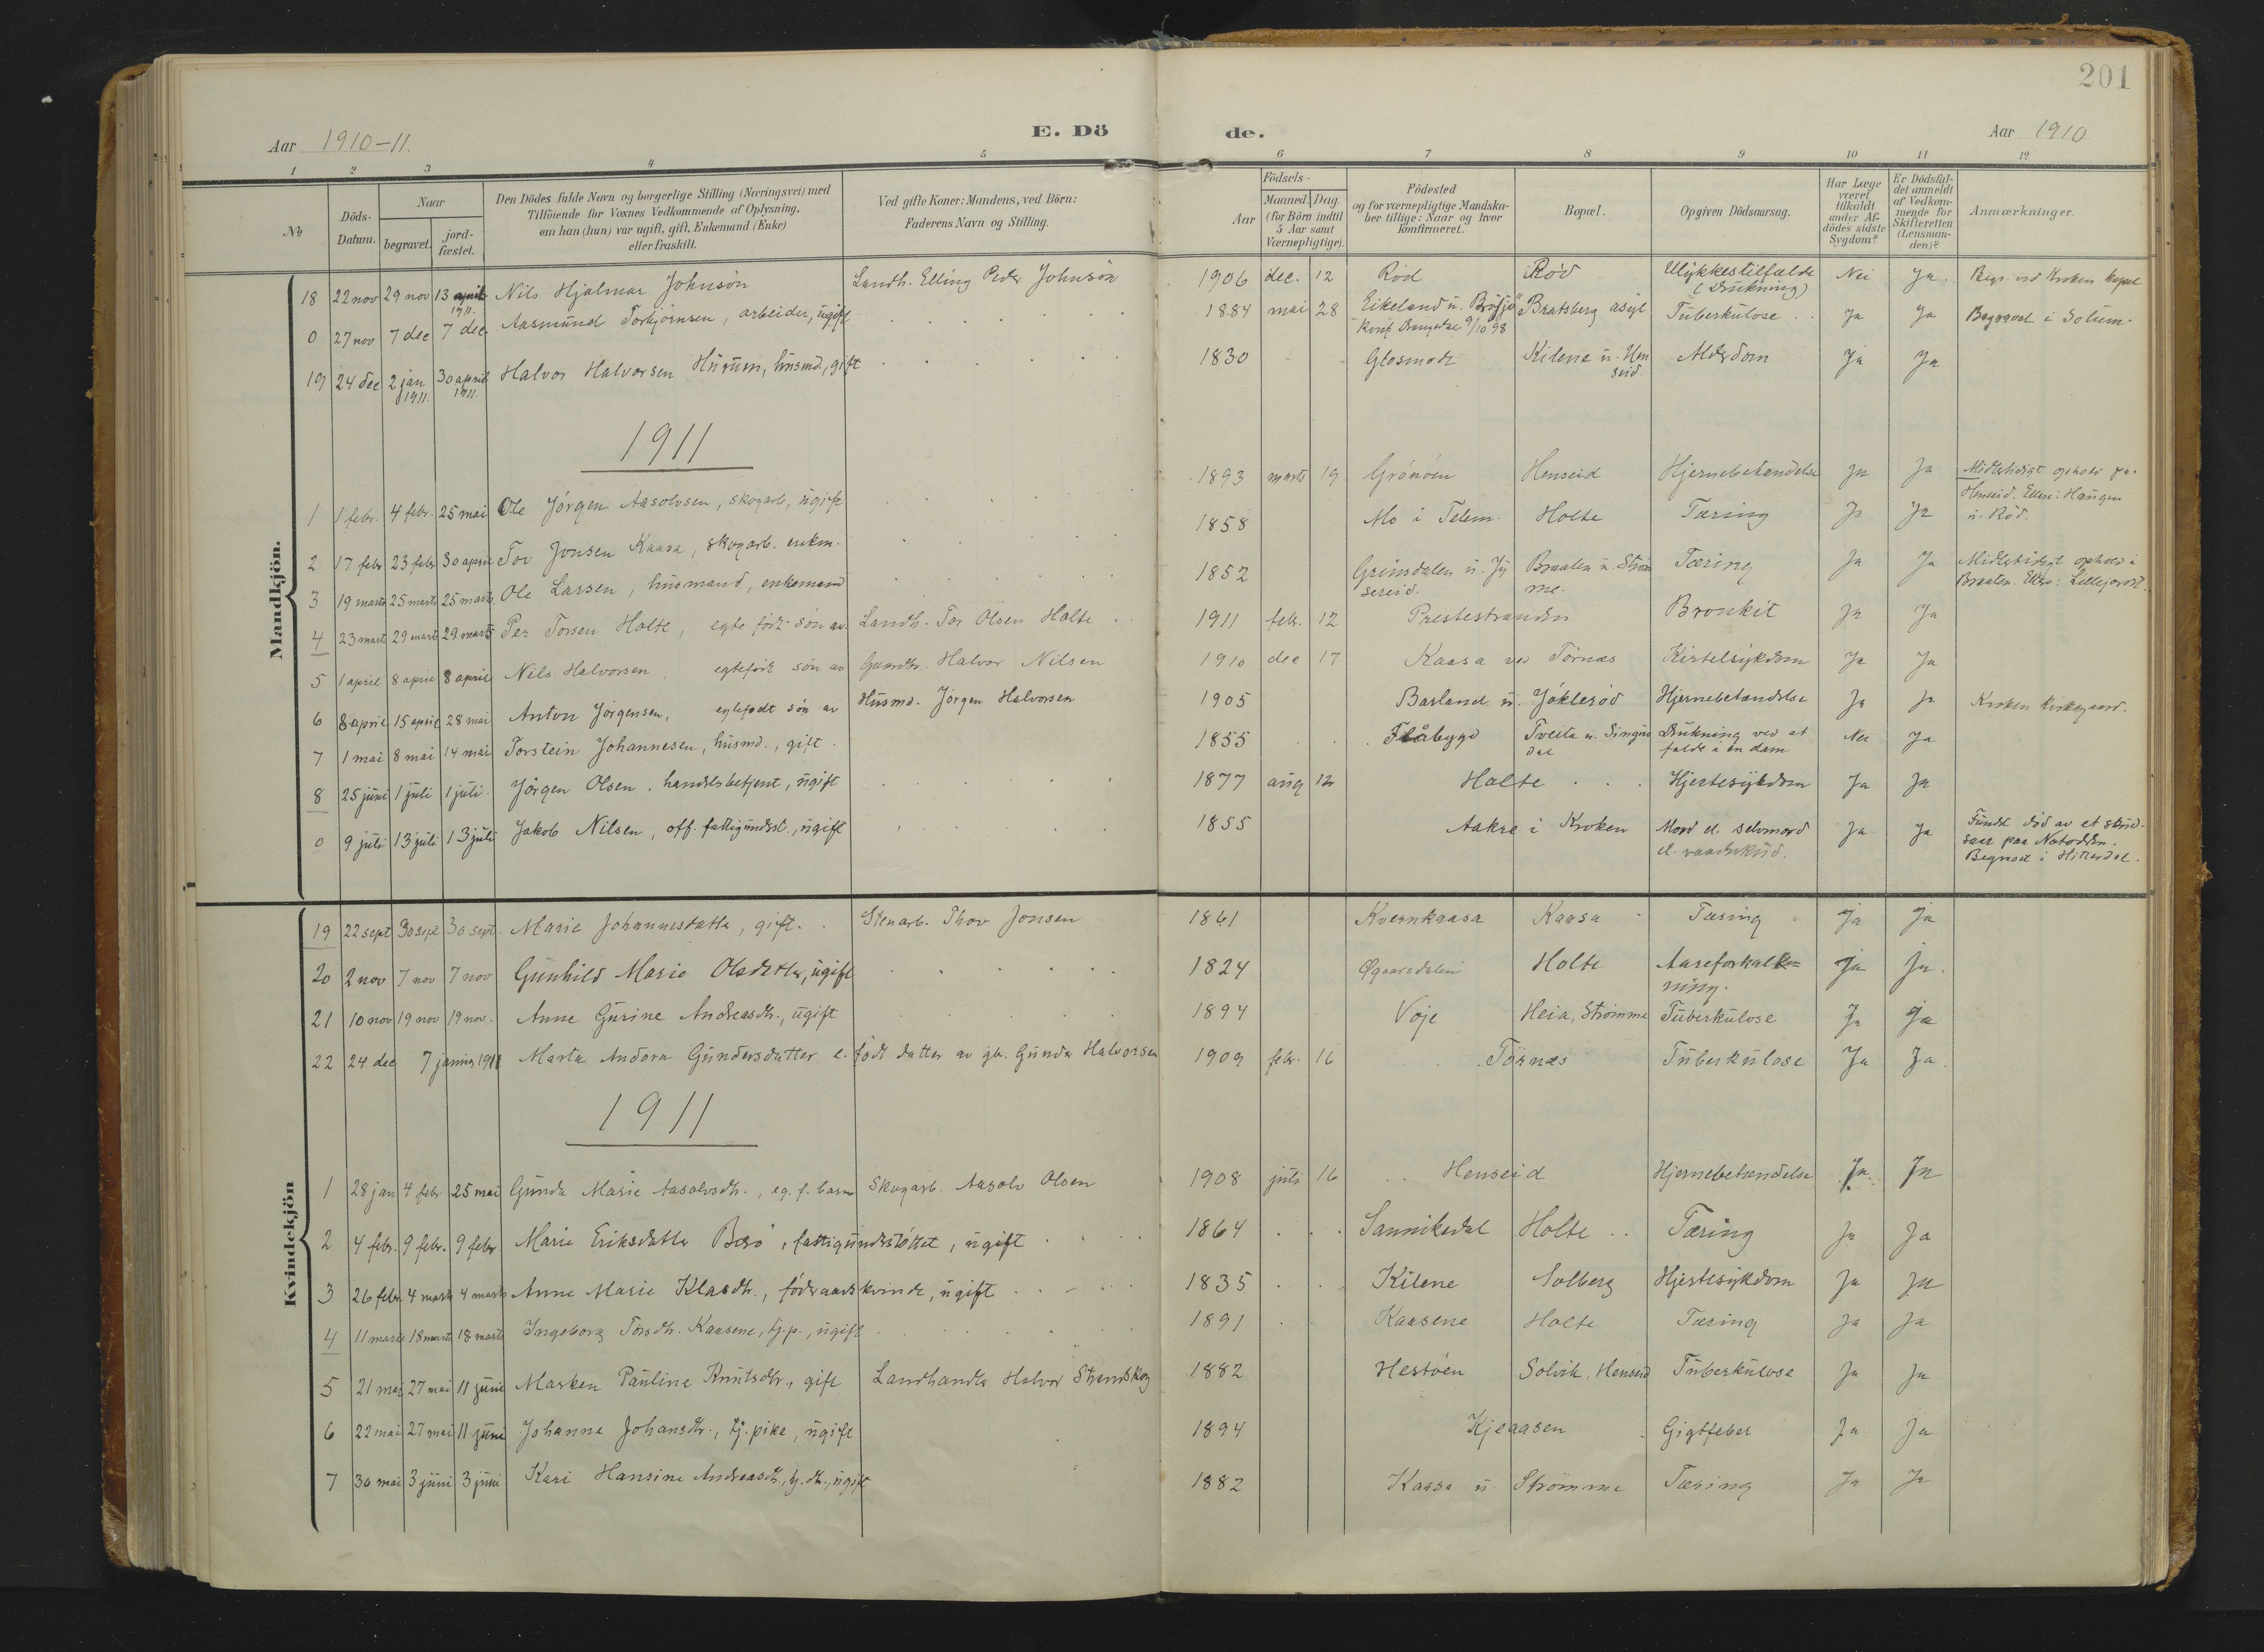 201
Aar 1910-11.
E. Dö
de.
Aar 1910
1 2 3 4 5 6 7 8 9 10 11 12
№
Döds-Datum.
Naar
begravet.
jord-fæstet.
Den Dödes fulde Navn og borgerlige Stilling (Næringsvei) med
Tilföiende for Voxnes Vedkommende af Oplysning,
om han (hun) var ugift, gift, Enkemand (Enke)
eller fraskilt.
Ved gifte Koner: Mandens, ved Börn:
Faderens Navn og Stilling.
Födsels-
Aar
Maaned. Dag.
(for Börn indtil
5 Aar samt
Værnepligtige).
Födested
og for værnepligtige Mandska-
ber tillige: Naar og hvor
konfirmeret.
Bopæl.
Opgiven Dödsaarsag.
Har Læge
været
tilkaldt
under Af-
dödes sidste
Sygdom?
Er Dödsfal-
det anmeldt
af Vedkom-
mende for
Skifteretten
(Lensman-
den)?
Anmærkninger.
Mandkjön.
18 22 nov 29 nov 13 april 1911. Nils Hjalmar Johnsön Landh. Elling Peder Johnsön 1906 dec. 12 Röd Röd Ulykkestilfælde (Drukning) Nei Ja Begr. ved Kroken kapel
0 27 nov 7 dec 7 dec. Aasmund Torbjörnsen, arbeider, ugift 1884 mai 28 Eikeland u. Konf. 9/10 98 Bratsberg asyl Tuberkulose Ja Ja Begravet i Solum.
19 24 dec 2 jan 1911. 30 april 1911. Halvor Halvorsen Hurum, husmd., gift 1830 Glosmodt Kilene u. Henseid. Alderdom Ja Ja
1911
1 1 febr. 4 febr. 25 mai Ole Jörgen Aasolvsen, skogarb., ugift 1893 marts 19 Grönöen Henseid Hjernebetændelse Ja Ja Midlertidigt ophold pa. Henseid. Ellers: Haugen u. Röd.
2 17 febr 23 febr 30 april Tov Jonsen Kaasa, skogarb. enkm. 1858 Mo i Telem. Holte Tæring Ja Ja
3 19 marts 25 marts 25 marts. Ole Larsen, husmand, enkemand 1852 Grinsdalen u. Braalen u. Strömme. Tæring Ja Ja Midlertidigt ophold i Braalen. Ellers:
4 23 marts 29 marts 29 marts Per Torsen Holte, egte födt sön av Landh. Tor Olsen Holte 1911 febr. 12 Prestestranden Bronkit Ja Ja
5 1 april 8 april 8 april Nils Halvorsen, egtefödt sön av Gaardbr. Halvor Nilsen 1910 dec 17 Kaasa ved Törnæs Kirtelsykdom Ja Ja
6 8 april 15 april 28 mai Anton Jörgensen, egtefødt sön av Husmd. Jörgen Halvorsen 1905 Barland u. Jökleröd Hjernebetændelse Ja Ja Kroken kirkegaard.
7 1 mai 8 mai 14 mai Torstein Johannesen, husmd., gift 1855 Flåbygd Tveita u. Drukning ved at falde i en dam Nei Ja
8 25 juni 1 juli 1 juli. Jörgen Olsen, handelsbetjent, ugift 1877 aug 12 Holte Hjertesykdom Ja Ja
0 9 juli 13 juli 13 juli Jakob Nilsen, off. fattigunderst., ugift 1855 Aakre i Kroken Mord el. selvmord el. vaadeskud. Ja Ja Fundet död av et skudsaar paa Notodden. Begravet i Hitterdal.
Kvindekjön
19 22 sept 30 sept 30 sept. Marie Johannesdatter, gift. Stenarb. Thov Jonsen 1861 Kvernkaasa Kaasa Tæring Ja Ja
20 2 nov 7 nov 7 nov Gunhild Marie Olsdatter, ugift 1824 Øgaarsdalen Holte Aareforkalkning. Ja Ja.
21 10 nov 19 nov 19 nov. Anne Gurine Andreasdtr., ugift 1894 Voje Heia, Strömme Tuberkulose Ja Ja
22 24 dec 7 januar 1911 Marta Andora Gundersdatter e. födt datter av gb. Gunder Halvorsen 1909 febr. 16 Törnæs Tuberkulose Ja Ja.
1911
1 28 jan 4 febr 25 mai Gunda Marie Aasolvsdtr., eg. f. barn Skogarb. Aasolv Olsen 1908 juli 16 Henseid Hjernebetændelse Ja Ja
2 4 febr. 9 febr. 9 febr Marie Eriksdatter Bærö, fattigunderstöttet, ugift 1864 Sannikedal Holte Tæring Ja Ja
3 26 febr 4 marts 4 marts Anne Marie Klasdtr., föderaadskvinde, ugift 1835 Kilene Solberg Hjertesykdom Ja Ja
4 11 marts 18 marts 18 marts Ingeborg Torsdtr. Kaasene, tj.p., ugift 1891 Kaasene Holte Tæring Ja Ja
5 21 mai 27 mai 11 juni Marken Pauline Knutsdtr., gift Landhandler Halvor Strandskog 1882 Hestöen Solvik, Henseid Tuberkulose Ja Ja
6 22 mai 27 mai 11 juni Johanne Johansdtr., tj. pike, ugift 1894 Kjeaasen Gigtfeber Ja Ja
7 30 mai 3 juni 3 juni Kari Hansine Andreasdtr., ugift 1882 Kaasa u. Strömme Tæring Ja Ja